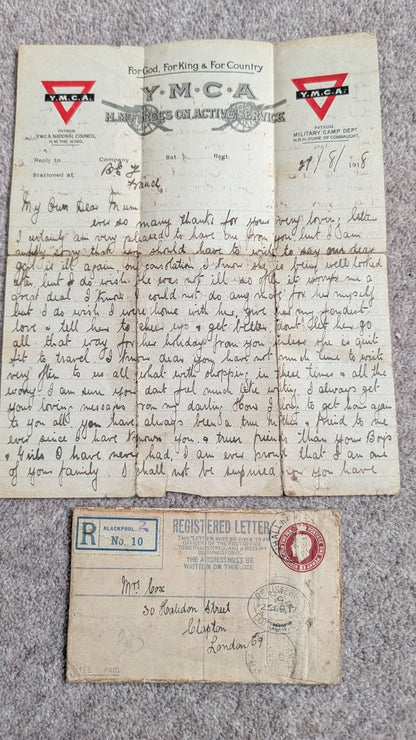 For God, For King & For Country
Y.M.C.A.
Y.M.C.A.
Y·M·C·A
H.M. FORCES ON ACTIVE SERVICE
PATRON
Y.M.C.A. NATIONAL COUNCIL
H.M. THE KING.
PATRON
MILITARY CAMP DEPT
H.R.H. DUKE OF CONNAUGHT.
Reply to Company Bat. Regt. 29/8/1918
Stationed at B E F
France
My Own Dear Mum
ever so many thanks for your very loving letter
I certainly am very pleased to have one from you but I am
awfully sorry that you should have to write to say our dear
girl is ill again one consolation I know she is being well looked
after but I do wish she was not ill so often it worries me a
great deal I know I could not do any thing for her myself
but I do wish I were home with her, give her my fondest
love & tell her to cheer up & get better dont let her go
all that way for her holiday from you unless she is quite
fit to travel I know dear you have not much time to write
very often to us all what with shopping in these times & all the
worry I am sure you dont feel much like writing I always get
your loving messages from my darling How I long to get home again
to you all you have always been a true mother & friend to me
ever since I have known you & truer friends than your Boys
& Girls I have never had, I am ever proud that I am one
of your family. I shall not be surprised now you have
R
BLACKPOOL
No. 10
REGISTERED LETTER.
THIS LETTER MUST BE GIVEN TO AN
OFFICER OF THE POST OFFICE
TO BE REGISTERED, AND A RECEIPT
OBTAINED FOR IT.
THE ADDRESS MUST BE
WRITTEN ON THIS SIDE.
Mrs Cox
30 Halidon Street
Clapton
London E9
FEE PAID